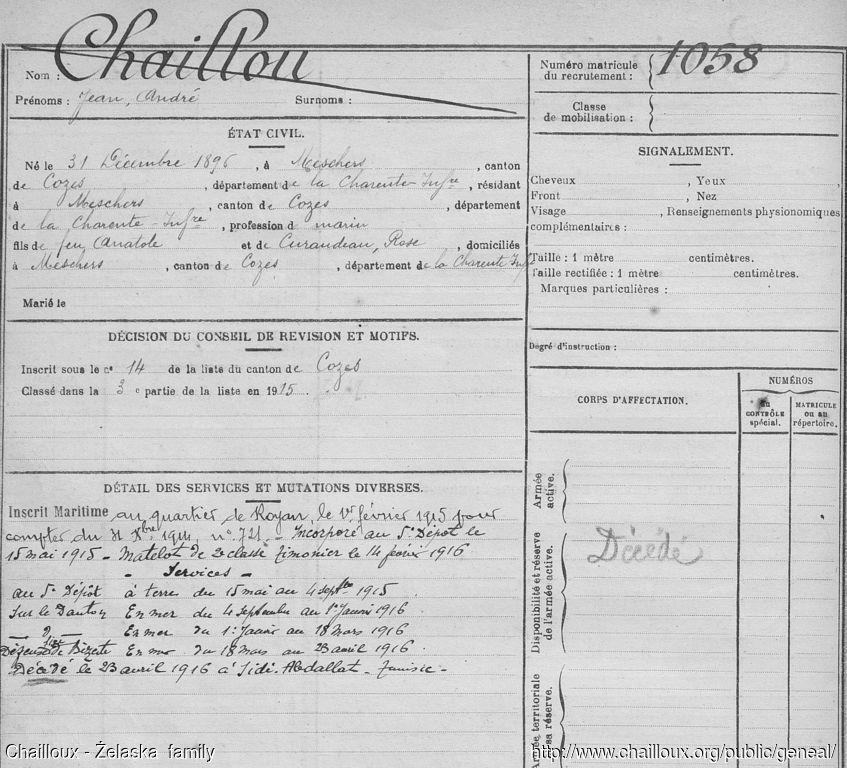 Nom : Chaillou
Prénoms : Jean, André Surnoms :
Numéro matricule du recrutement : 1058
Classe de mobilisation :
ÉTAT CIVIL.
Né le 31 Décembre 1896, à Meschers, canton
de Cozes, département de la Charente-Infre, résidant
à Meschers, canton de Cozes, département
de la Charente-Infre, profession de marin
fils de feu Anatole et de Curaudeau, Rose, domiciliés
à Meschers, canton de Cozes, département de la Charente Infre
Marié le
SIGNALEMENT.
Cheveux , Yeux ,
Front , Nez
Visage , Renseignements physionomiques
complémentaires :
Taille : 1 mètre centimètres.
Taille rectifiée : 1 mètre centimètres.
Marques particulières :
DÉCISION DU CONSEIL DE REVISION ET MOTIFS.
Inscrit sous le n° 14 de la liste du canton de Cozes
Classé dans la 3e partie de la liste en 1915.
Degré d'instruction :
CORPS D'AFFECTATION.
NUMÉROS
au CONTRÔLE spécial.
MATRICULE ou au répertoire.
DÉTAIL DES SERVICES ET MUTATIONS DIVERSES.
Inscrit Maritime au quartier de Royan, le 1er février 1915 pour
compter du 31 Xbre 1914, n° 721. - Incorporé au 5e Dépot le
15 mai 1915 - Matelot de 2e classe timonier le 14 février 1916
- Services -
au 5e Dépôt à terre du 15 mai au 4 septbre 1915
Sur le Danton En mer du 4 septembre au 1er Janvi 1916
- d° - En mer du 1er Janvier au 18 Mars 1916
de Bizerte En mer du 18 mars au 23 avril 1916
Décédé le 23 avril 1916 à Sidi-Abdallat - Tunisie -
Armée active.
Disponibilité et réserve de l'armée active.
Décédé
Armée territoriale
sa réserve.
Chailloux - Želaska family
http://www.chailloux.org/public/geneal/